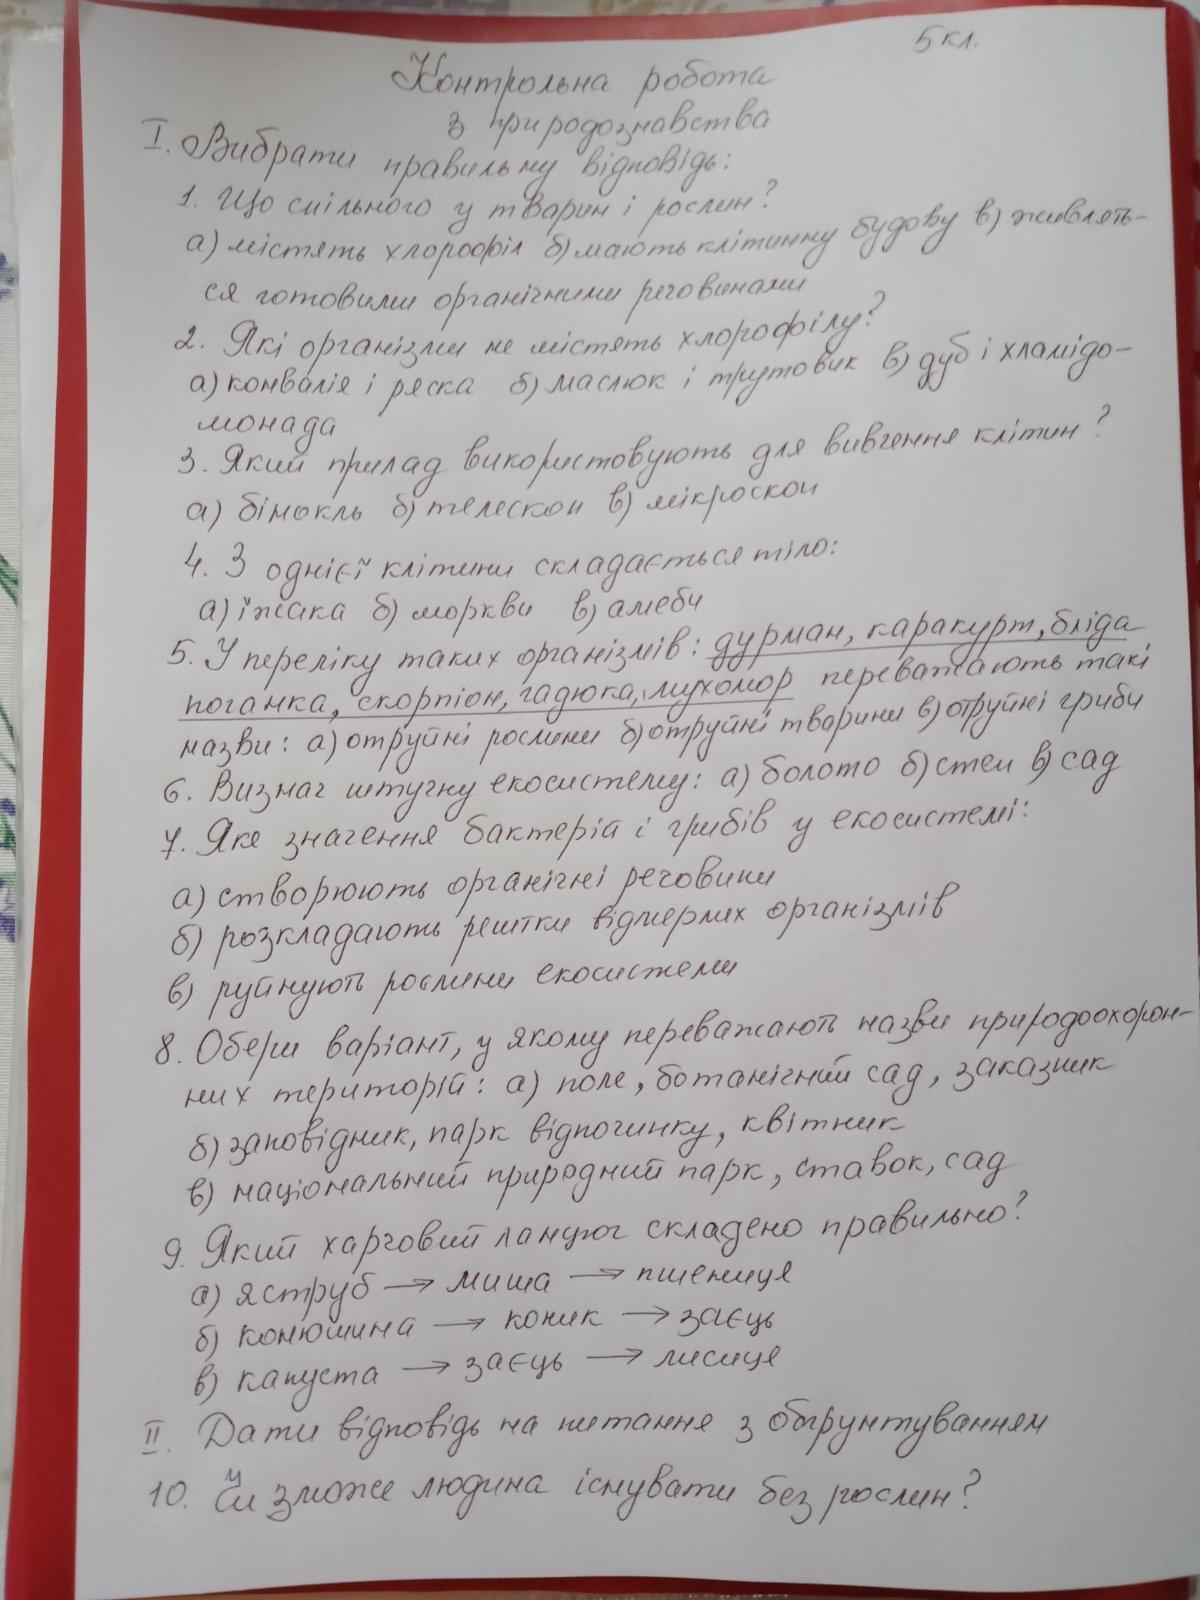 5 кл.
Контрольна робота
з природознавства
I. Вибрати правильну відповідь:
1. Що спільного у тварин і рослин?
а) містять хлорофіл б) мають клітинну будову в) живлять-
ся готовими органічними речовинами
2. Які організми не містять хлорофілу?
а) конвалія і ряска б) маслюк і трутовик в) дуб і хламідо-
монада
3. Який прилад використовують для вивчення клітин?
а) бінокль б) телескоп в) мікроскоп
4. З однієї клітини складається тіло:
а) їжака б) моркви в) амеби
5. У переліку таких організмів: дурман, каракурт, бліда
поганка, скорпіон, гадюка, мухомор переважають такі
назви: а) отруйні рослини б) отруйні тварини в) отруйні гриби
6. Визнач штучну екосистему: а) болото б) степ в) сад
7. Яке значення бактерій і грибів у екосистемі:
а) створюють органічні речовини
б) розкладають рештки відмерлих організмів
в) руйнують рослини екосистеми
8. Обери варіант, у якому переважають назви природоохорон-
них територій: а) поле, ботанічний сад, заказник
б) заповідник, парк відпочинку, квітник
в) національний природний парк, ставок, сад
9. Який харчовий ланцюг складено правильно?
а) яструб → миша → пшениця
б) конюшина → коник → заєць
в) капуста → заєць → лисиця
II. Дати відповідь на питання з обґрунтуванням
10. Чи зможе людина існувати без рослин?